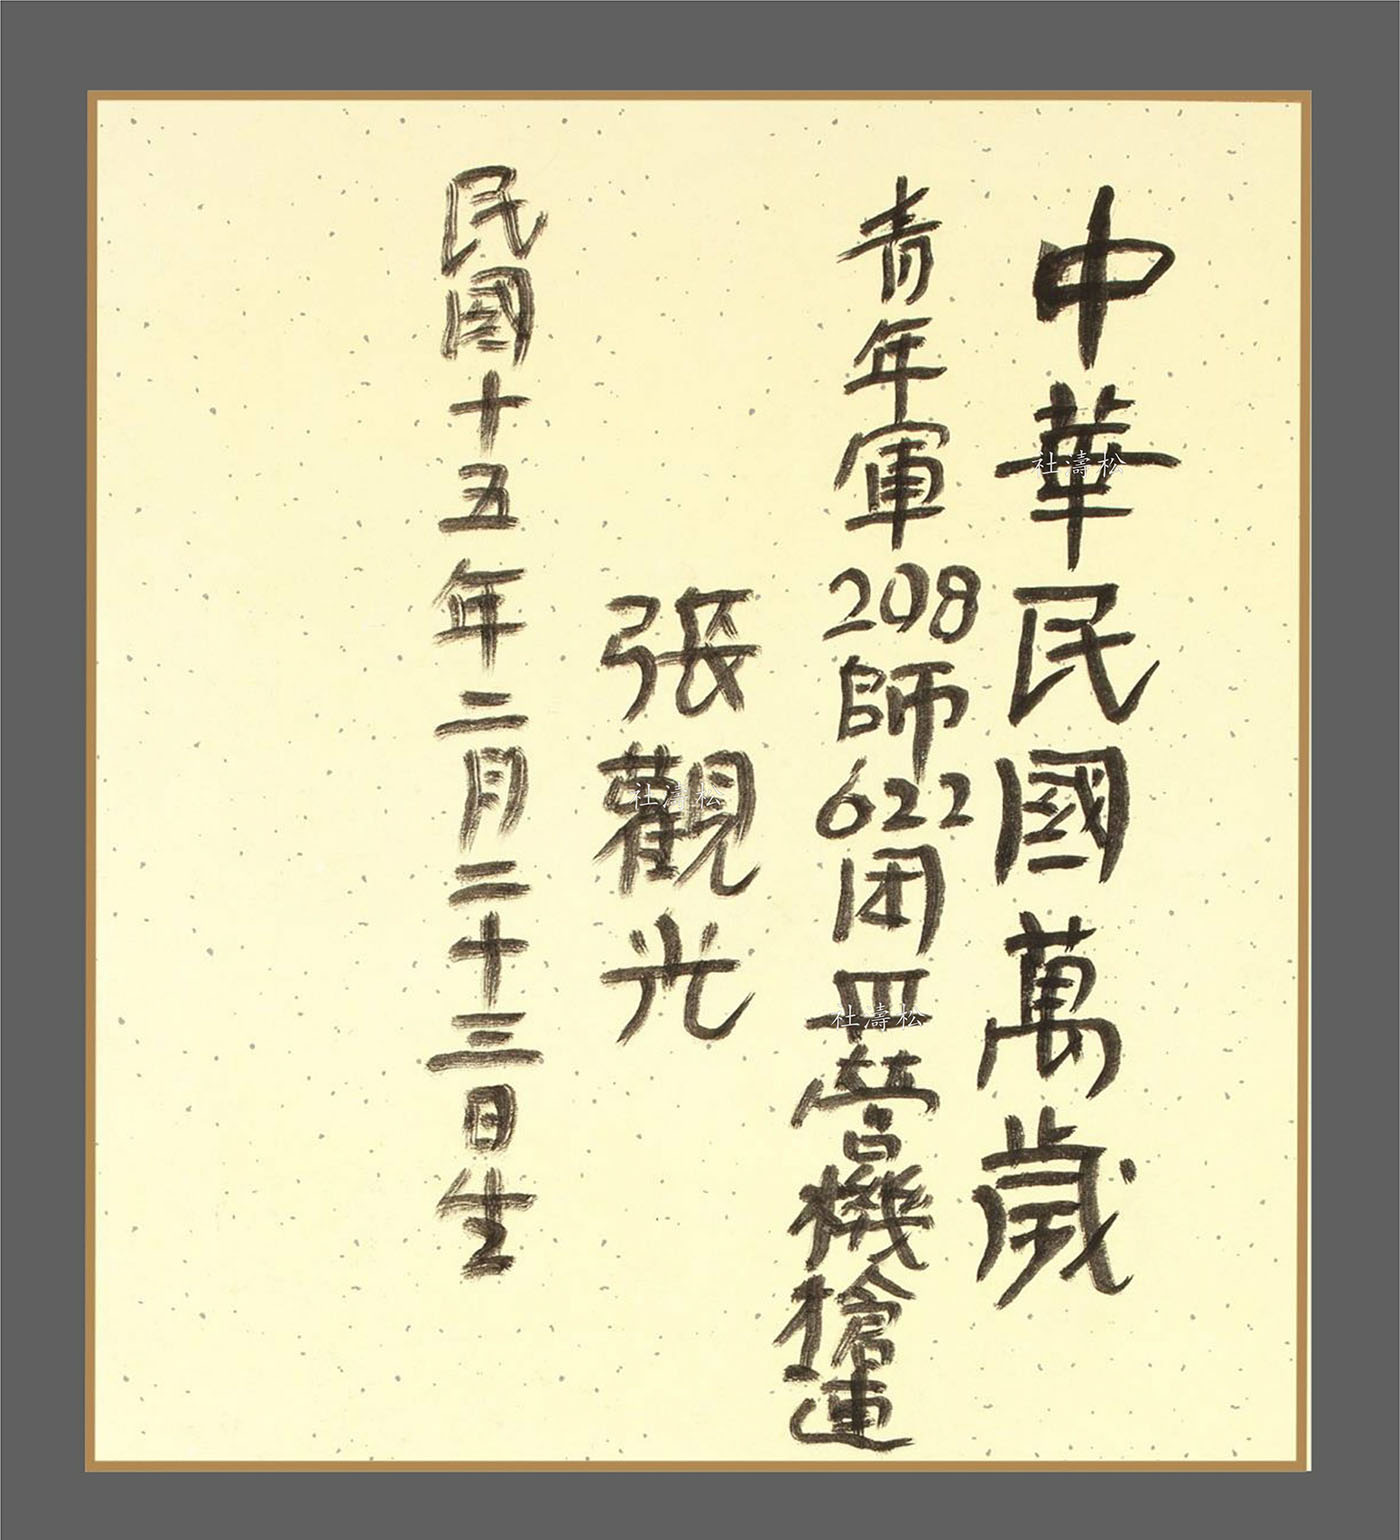 中華民國萬歲
青年軍208師622团營機槍連
張觀光
民國十五年二月二十三日生
杜濤松
杜濤松
杜濤松